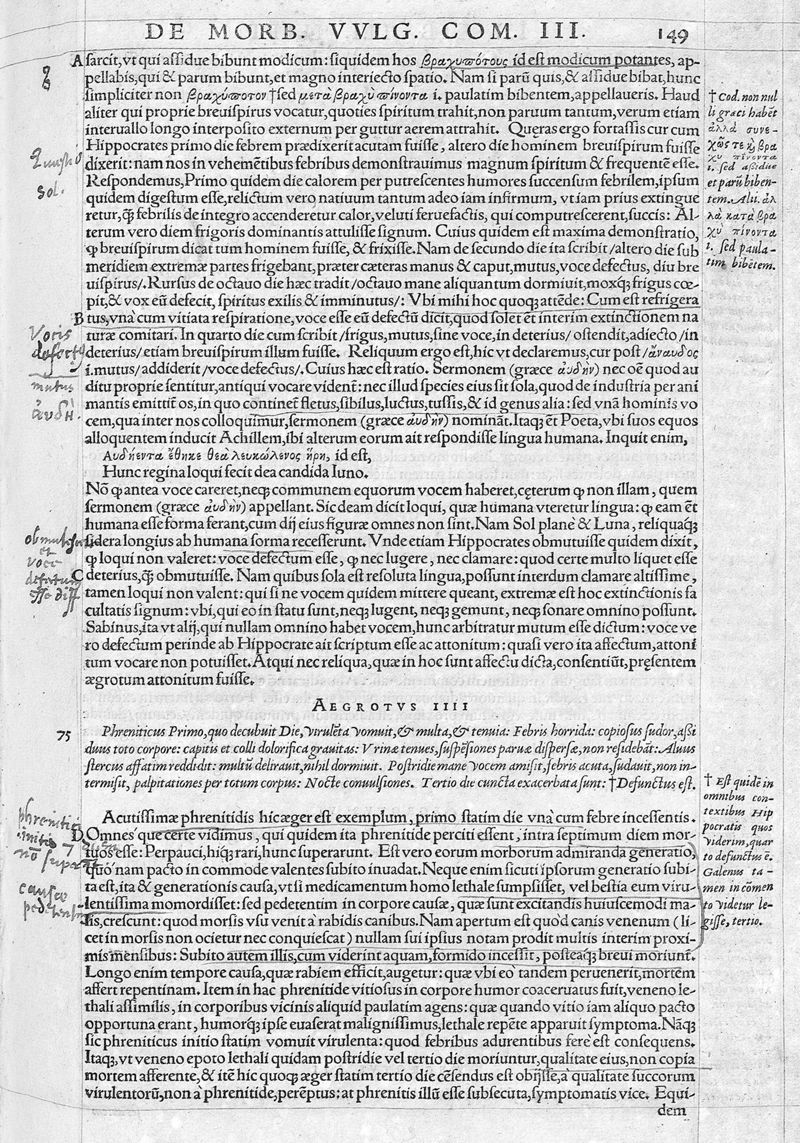 DE MORB. VVLG. COM. III. 149
A sarcit, vt qui assidue bibunt modicum: siquidem hos βραχυπότους id est modicum potantes, ap-
pellabis, qui & parum bibunt, et magno interiecto spatio. Nam si parū quis, & assidue bibat, hunc
simpliciter non βραχύποτον † sed μετὰ βραχὺ πίνοντα i. paulatim bibentem, appellaueris. Haud
aliter qui proprie breuispirus vocatur, quoties spiritum trahit, non paruum tantum, verum etiam
interuallo longo interposito externum per guttur aerem attrahit. Quęras ergo fortassis cur cum
Hippocrates primo die febrem prædixerit acutam fuisse, altero die hominem breuispirum fuisse
dixerit: nam nos in vehemētibus febribus demonstrauimus magnum spiritum & frequentē esse.
Respondemus, Primo quidem die calorem per putrescentes humores succensum febrilem, ipsum
quidem digestum esse, relictum vero natiuum tantum adeo iam infirmum, vt iam prius extingue
retur, q̄ febrilis de integro accenderetur calor, veluti feruefactis, qui computrescerent, succis: Al-
terum vero diem frigoris dominantis attulisse signum. Cuius quidem est maxima demonstratio,
ꝙ breuispirum dicat tum hominem fuisse, & frixisse. Nam de secundo die ita scribit/altero die sub
meridiem extremæ partes frigebant, præter cæteras manus & caput, mutus, voce defectus, diu bre
uispirus/. Rursus de octauo die hæc tradit/octauo mane aliquantum dormiuit, moxq; frigus cœ-
pit, & vox eū defecit, spiritus exilis & imminutus/: Vbi mihi hoc quoq; attēde: Cum est refrigera
B tus, vnà cum vitiata respiratione, voce esse eū defectū dicit, quod solet et interim extinctionem na
turæ comitari. In quarto die cum scribit/frigus, mutus, sine voce, in deterius/ostendit, adiecto/in
deterius/etiam breuispirum illum fuisse. Reliquum ergo est, hic vt declaremus, cur post/ἄναυδος
i. mutus/addiderit/voce defectus/. Cuius hæc est ratio. Sermonem (græce αὐδὴν) nec oē quod au
ditu proprie sentitur, antiqui vocare vident̄: nec illud species eius sit sola, quod de industria per ani
mantis emittit os, in quo continet̄ fletus, sibilus, luctus, tussis, & id genus alia: sed vnā hominis vo
cem, qua inter nos colloquimur, sermonem (græce αὐδὴν) nomināt. Itaq; et Poeta, vbi suos equos
alloquentem inducit Achillem, ibi alterum eorum ait respondisse lingua humana. Inquit enim,
Αὐδήεντα ἔθηκε θεὰ λευκώλενος ἥρη, id est,
Hunc regina loqui fecit dea candida Iuno.
Nō ꝙ antea voce careret, neq; communem equorum vocem haberet, cęterum ꝙ non illam, quem
sermonem (græce αὐδὴν) appellant. Sic deam dicit loqui, quæ humana vteretur lingua: ꝙ eam et
humana esse forma ferant, cum dij eius figuræ omnes non sint. Nam Sol plane & Luna, reliquaq;
sidera longius ab humana forma recesserunt. Vnde etiam Hippocrates obmutuisse quidem dixit,
ꝙ loqui non valeret: voce defectum esse, ꝙ nec lugere, nec clamare: quod certe multo liquet esse
C deterius, q̄ obmutuisse. Nam quibus sola est resoluta lingua, possunt interdum clamare altissime,
tamen loqui non valent: qui si ne vocem quidem mittere queant, extremæ est hoc extinctionis fa
cultatis signum: vbi, qui eo in statu sunt, neq; lugent, neq; gemunt, neq; sonare omnino possunt.
Sabinus, ita vt alij, qui nullam omnino habet vocem, hunc arbitratur mutum esse dictum: voce ve
ro defectum perinde ab Hippocrate ait scriptum esse ac attonitum: quasi vero ita affectum, attoni
tum vocare non potuisset. Atqui nec reliqua, quæ in hoc sunt affectu dicta, consentiūt, pręsentem
ægrotum attonitum fuisse.
† Cod. non nul
li graci habēt
ἀλλὰ συνε-
χῶς τε ϗ βρα
χὺ πίνοντα
i. sed assidue
et parū biben-
tem. Alii. ἀλ
λὰ κατὰ βρα
χὺ πίνοντα
i. sed paula-
tim bibētem.
Quæstio
Sol.
Vocis
defectus
mutus
αὐδή.
obmutuisse
et
voce
defectum
esse diff
AEGROTVS IIII
75 Phreniticus Primo, quo decubuit Die, virulēta vomuit, & multa, & tenuia: Febris horrida: copiosus sudor, assi
duus toto corpore: capitis et colli dolorifica grauitas: Vrinæ tenues, suspēsiones paruæ dispersæ, non residebāt: Aluus
stercus affatim reddidit: multū delirauit, nihil dormiuit. Postridie mane vocem amisit, febris acuta, sudauit, non in-
termisit, palpitationes per totum corpus: Nocte conuulsiones. Tertio die cuncta exacerbata sunt: † Defunctus est.
Acutissimæ phrenitidis hic æger est exemplum, primo statim die vnà cum febre incessentis.
D Omnes que certe vidimus, qui quidem ita phrenitide perciti essent, intra septimum diem mor-
tuos esse: Perpauci, hiq; rari, hunc superarunt. Est vero eorum morborum admiranda generatio,
quo nam pacto in commode valentes subito inuadat. Neque enim sicuti ipsorum generatio subi-
ta est, ita & generationis causa, vt si medicamentum homo lethale sumpsisset, vel bestia eum viru-
lentissima momordisset: sed pedetentim in corpore causæ, quæ sunt excitandis huiuscemodi ma-
lis, crescunt: quod morsis vsu venit à rabidis canibus. Nam apertum est quod canis venenum (li-
cet in morsis non ocietur nec conquiescat) nullam sui ipsius notam prodit multis interim proxi-
mis mēsibus: Subito autem illis, cum viderint aquam, formido incessit, posteaq; breui moriunt̄.
Longo enim tempore causa, quæ rabiem efficit, augetur: quæ vbi eo tandem peruenerit, mortem
affert repentinam. Item in hac phrenitide vitiosus in corpore humor coaceruatus fuit, veneno le-
thali assimilis, in corporibus vicinis aliquid paulatim agens: quæ quando vitio iam aliquo pacto
opportuna erant, humorq; ipse euaserat malignissimus, lethale repēte apparuit symptoma. Nāq;
sic phreniticus initio statim vomuit virulenta: quod febribus adurentibus fere est consequens.
Itaq; vt veneno epoto lethali quidam postridie vel tertio die moriuntur, qualitate eius, non copia
mortem afferente, & itē hic quoq; æger statim tertio die cēsendus est obijsse, à qualitate succorum
virulentorū, non à phrenitide, perēptus: at phrenitis illū esse subsecuta, symptomatis vice. Equi-
dem
† Est quidē in
omnibus con-
textibus Hip
pocratis quos
viderim, quar
to defunctus ē.
Galenus ta-
men in cōmen
to videtur le-
gisse, tertio.
phrenitici
causæ